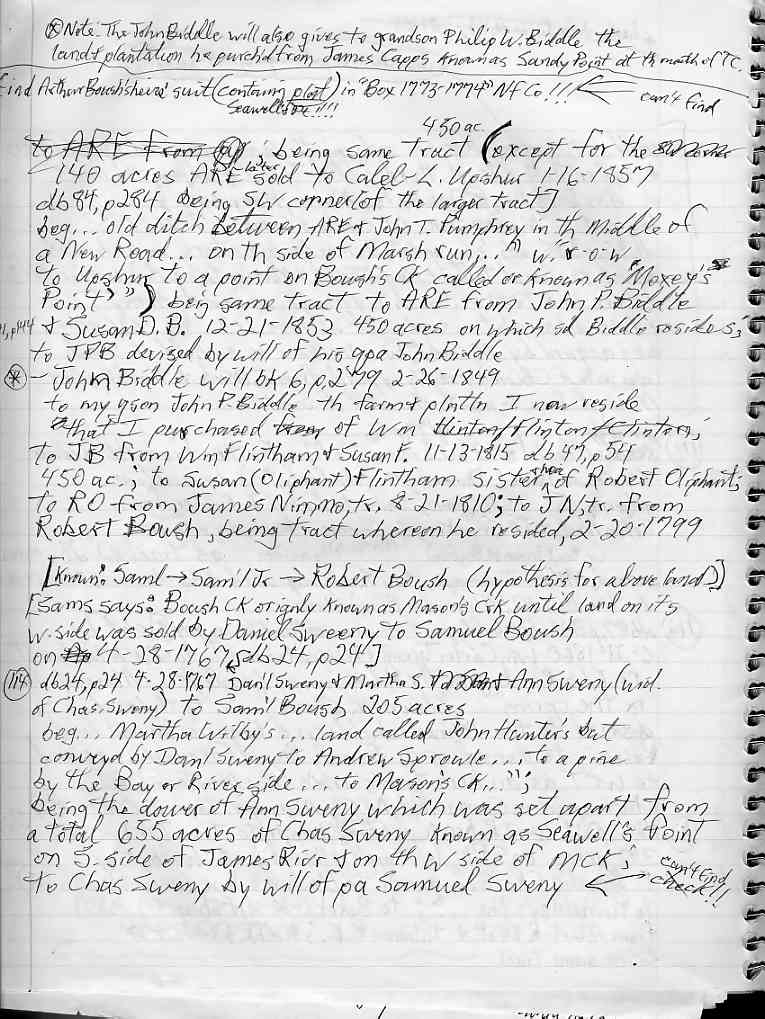 ⊛Note: The John Biddle will also gives to grandson Philip W. Biddle the
land & plantation he purch'd from James Capps known as Sandy Point at th mouth of TC.
find Arthur Boush's heirs' suit (containing plat) in "Box 1773-1774" NfCo!!! ← can't find
Seawell's Pt!!!!
450 ac.
to ARE from being same tract (except for the
140 acres ARE later sold to Caleb L. Upshur 1-16-1857
db84, p284 being SW corner of the larger tract]
beg... old ditch between ARE & John T. Pumphrey in th middle of
a New Road... on th side of Marsh run,..." w. r-o-w
to Upshur to a point on Boush's Ck called or known as "Moxey's
Point") being same tract to ARE from John P. Biddle
& Susan D. B. 12-21-1853 450 acres on which sd Biddle resides;
to JPB devised by will of his gpa John Biddle
⊛ - John Biddle will bk 6, p, 299 2-26-1849
to my gson John P. Biddle th farm & plntn I now reside
"that I purchased from of Wm Hinton/Flinton/Clinton;
to JB from Wm Flintham & Susan F. 11-13-1815 db47, p54
450 ac.; to Susan (Oliphant) Flintham sister of Robert Oliphant;
to RO from James Nimmo, tr. 8-21-1810; to JN, tr. from
Robert Boush, being tract whereon he resided, 2-20-1799
[Known: Saml → Sam'l Jr. → Robert Boush (hypothesis for above land)]
[Sams says: Boush CK orignly known as Mason's Crk until land on its
w. side was sold by Daniel Sweeny to Samuel Boush
on 4-28-1767, db24, p24]
(114) db24, p24 4-28-1767 Dan'l Sweny & Martha S. Ann Sweny (wid.
of Chas. Sweny) to Sam'l Boush 205 acres
beg... Martha Wilby's... land called John Hunter's but
conveyd by Dan'l Sweny to Andrew Sproule... to a pine
by the Bay or River side... to Mason's CK...";
being the dower of Ann Sweny which was set apart from
a total 655 acres of Chas Sweny known as Seawell's Point
on S. side of James Rivr & on th W side of MCK;
to Chas Sweny by will of pa Samuel Sweny ← can't find
check!!